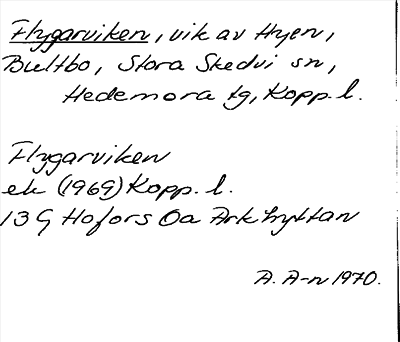 Flygarviken, vik av Hyen,
Bultbo, Stora Skedvi sn,
Hedemora tg, Kopp. l.
Flygarviken
ek (1969) Kopp. l.
13 G Hofors 0a Arkhyttan
A. A-n 1970.